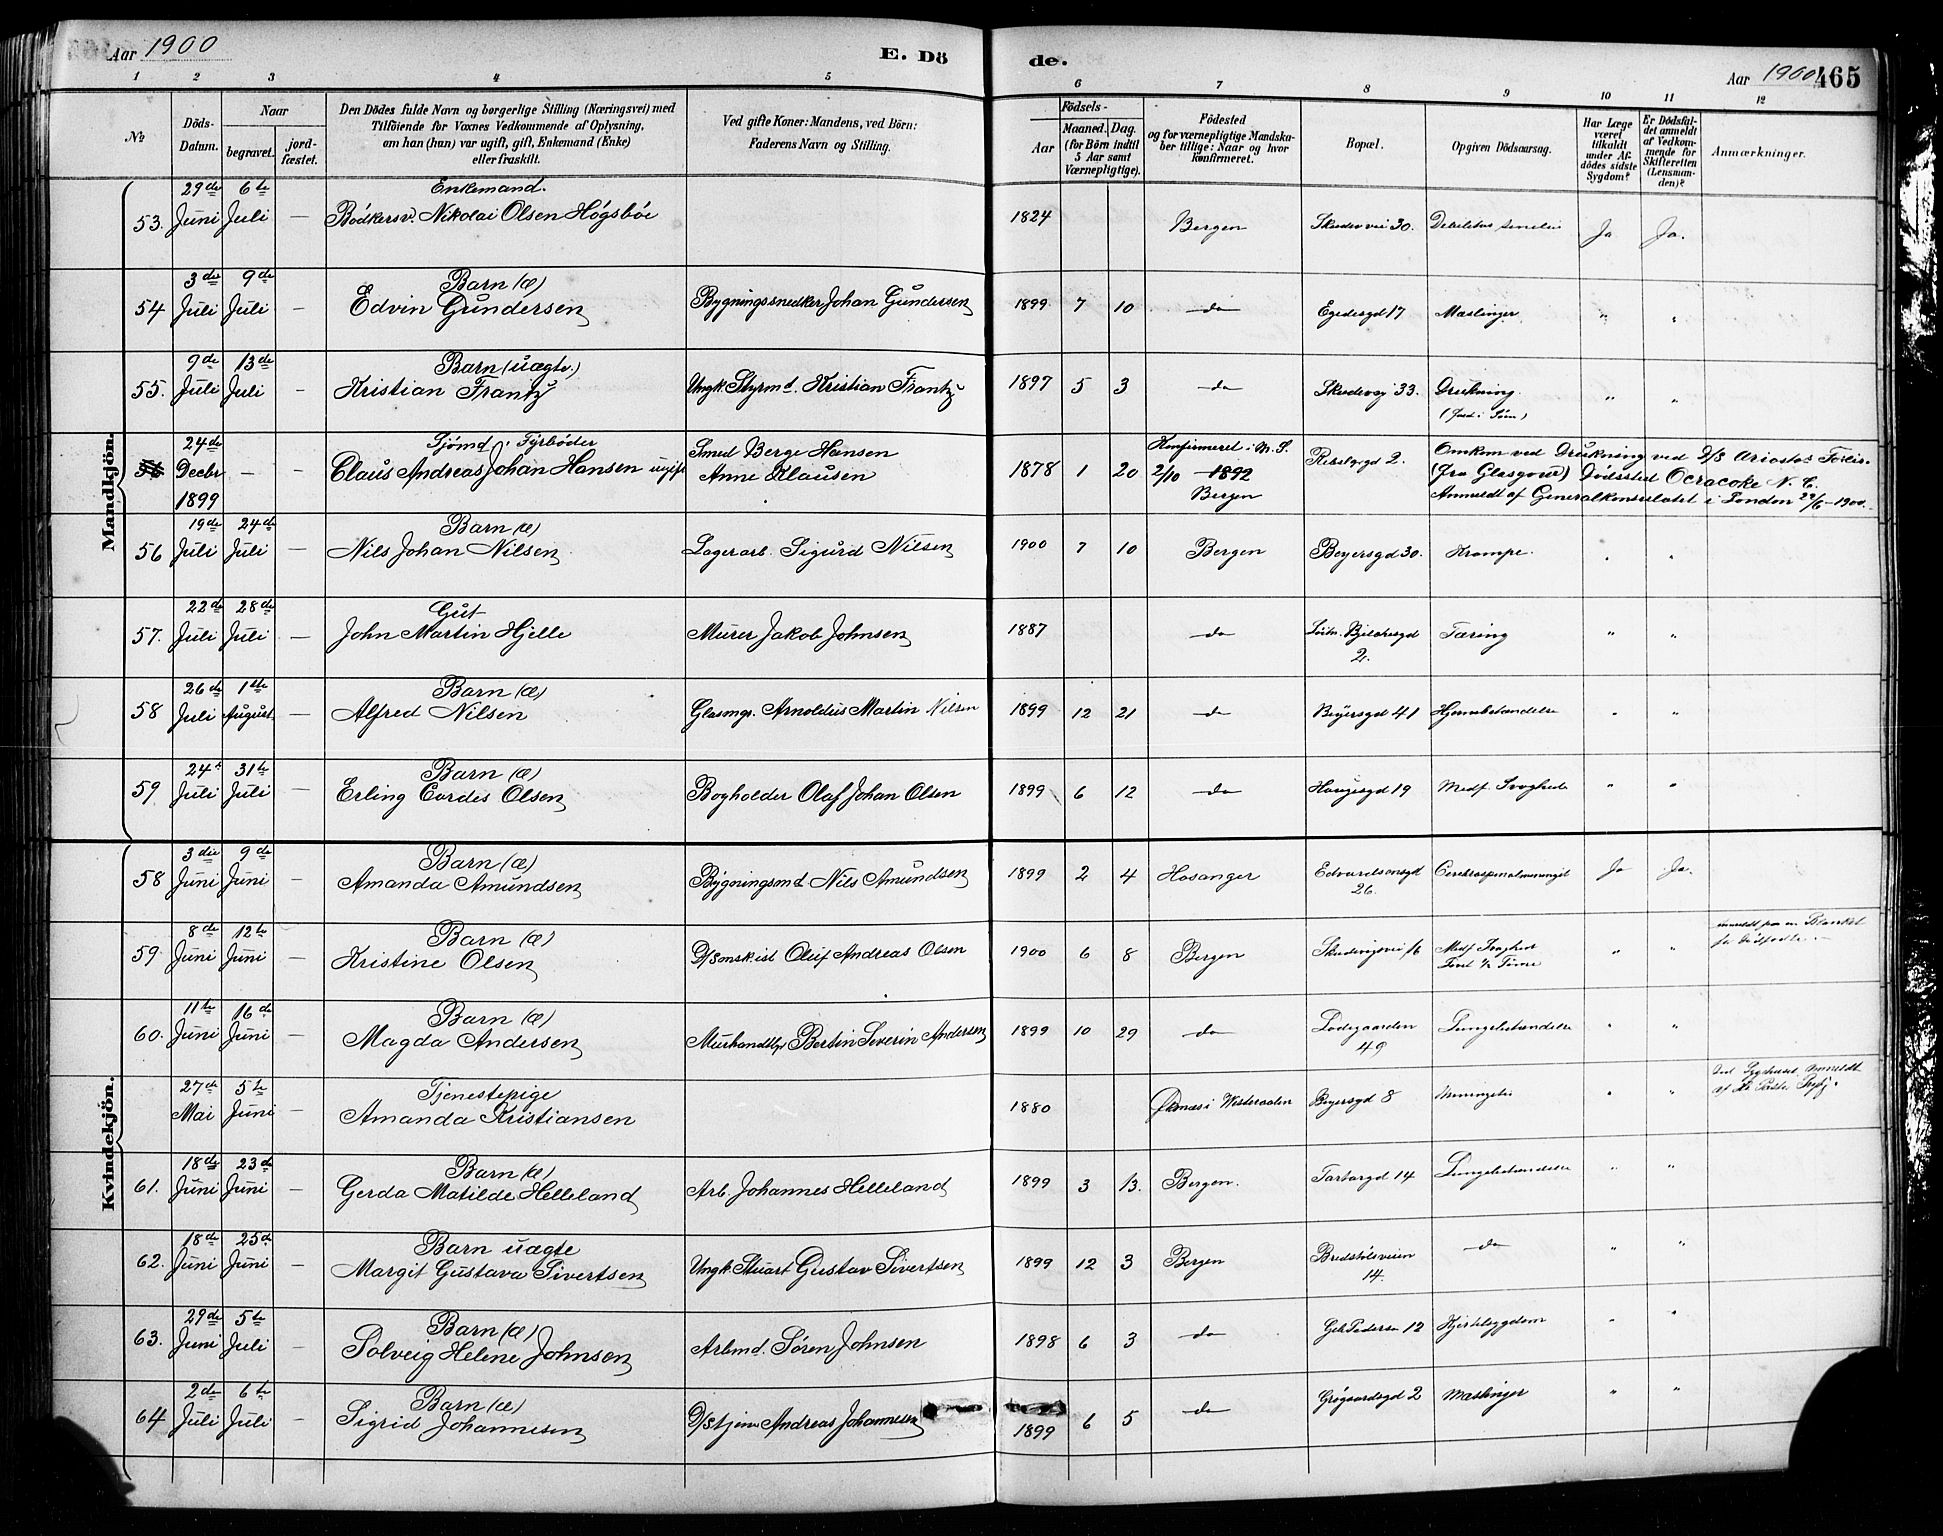 Aar 1900 E. Dö de. Aar 1900 465
1 2 3 4 5 6 7 8 9 10 11 12
№
Döds-Datum.
Naar
begravet.
jordfæstet.
Den Dödes fulde Navn og borgerlige Stilling (Næringsvei) med
Tilföiende for Voxnes Vedkommende af Oplysning,
om han (hun) var ugift, gift, Enkemand (Enke)
eller fraskilt.
Ved gifte Koner: Mandens, ved Börn:
Faderens Navn og Stilling.
Födsels-
Aar
Maaned. Dag.
(for Börn indtil
5 Aar samt
Værnepligtige).
Födested
og for værnepligtige Mandskaber tillige: Naar og hvor
konfirmeret.
Bopæl.
Opgiven Dödsaarsag.
Har Læge
været
tilkaldt
under Afdödes sidste
Sygdom?
Er Dödsfaldet anmeldt
af Vedkommende for
Skifteretten
(Lensmanden)?
Anmærkninger.
Mandkjön.
29de 6te Enkemand.
53. Juni Juli — Bödkersv. Nikolai Olsen Högsböe 1824 Bergen Skudevvei 30. Ja Ja.
3die 9de Barn (æ)
54 Juli Juli — Edvin Gundersen Bygningssnedker Johan Gundersen 1899 7 10 do Egedesgd 17 Mæslinger " "
9de 13de Barn (uægte)
55. Juli Juli — Kristian Frantz Ungk. Styrmd. Kristian Frantz 1897 5 3 do Skudevig 33. Drukning " "
24de Sjömd. Fyrböder Smed Berge Hansen Konfirmeret i N. S.
Decbr — — Claus Andreas Johan Hansen ugift Anne Klausen 1878 1 20 2/10 1892 Bergen Rebslgrgd 2. Omkom ved Drukning ved D/S Ariostos Forlis
1899 (fra Glasgow) Dödssted Ocracoke N. C.
Anmeldt af Generalkonsulatet i London 29/6-1900.
19de 24de Barn (æ)
56 Juli Juli — Nils Johan Nilsen Lagerarb. Sigurd Nilsen 1900 7 10 Bergen Beyersgd 30. Krampe. " "
22de 28de Gut
57. Juli Juli — John Martin Hjelle Murer Jakob Johnsen 1887 do Bjelchesgd 2. Tæring " "
26de 1ste Barn (æ)
58 Juli August — Alfred Nilsen Glasmgr. Arnoldus Martin Nilsen 1899 12 21 do Beyersgd 41 Hjernebetændelse " "
24de 31te Barn (æ)
59 Juli Juli — Erling Cordes Olsen Bogholder Olaf Johan Olsen 1899 6 12 do Haugesgd 19 Medf. Svaghed " "
Kvindekjön.
3die 9de Barn (æ)
58 Juni Juni — Amanda Amundsen Bygningsmd Nils Amundsen 1899 2 4 Hosanger Edvardsensgd 26. Cerebrospinalmeningit Ja Ja.
8de 12te Barn (æ) Anmeldt paa en Blanket
59. Juni Juni — Kristine Olsen Oluf Andreas Olsen 1900 6 8 Bergen Skudevigsvei 16 Medf. Svaghed " " for Dödfödte.
Levet ½ Time
11te 16de Barn (æ)
60. Juni Juni — Magda Andersen Murhandtlgr Bertin Severin Andersen 1899 10 29 do Ladegaarden 49 Lungebetændelse " "
27de 5te Tjenestepige
Mai Juni — Amanda Kristiansen 1880 Öxnæs i Vesteraalen Beyersgd 8 Meningitis " "
18de 23de Barn (æ)
61. Juni Juni — Gerda Matilde Helleland Arb. Johannes Helleland 1899 3 13. Bergen. Tartargd 14 Lungebetændelse " "
18de 25de Barn uægte
62. Juni Juni — Margit Gustava Sivertsen Ungk. Stuart Gustav Sivertsen 1899 12 3 Bergen Bredstölsveien 14. do " "
29de 5te Barn (æ)
63. Juni Juli — Solveig Helene Johnsen Arbmd. Sören Johnsen 1898 6 3 do 12 Hjertesygdom " "
2den 6te Barn (æ)
64 Juli Juli — Sigrid Johannesen Andreas Johannesen 1899 6 5 do Grögaardsgd 2 Mæslinger " "